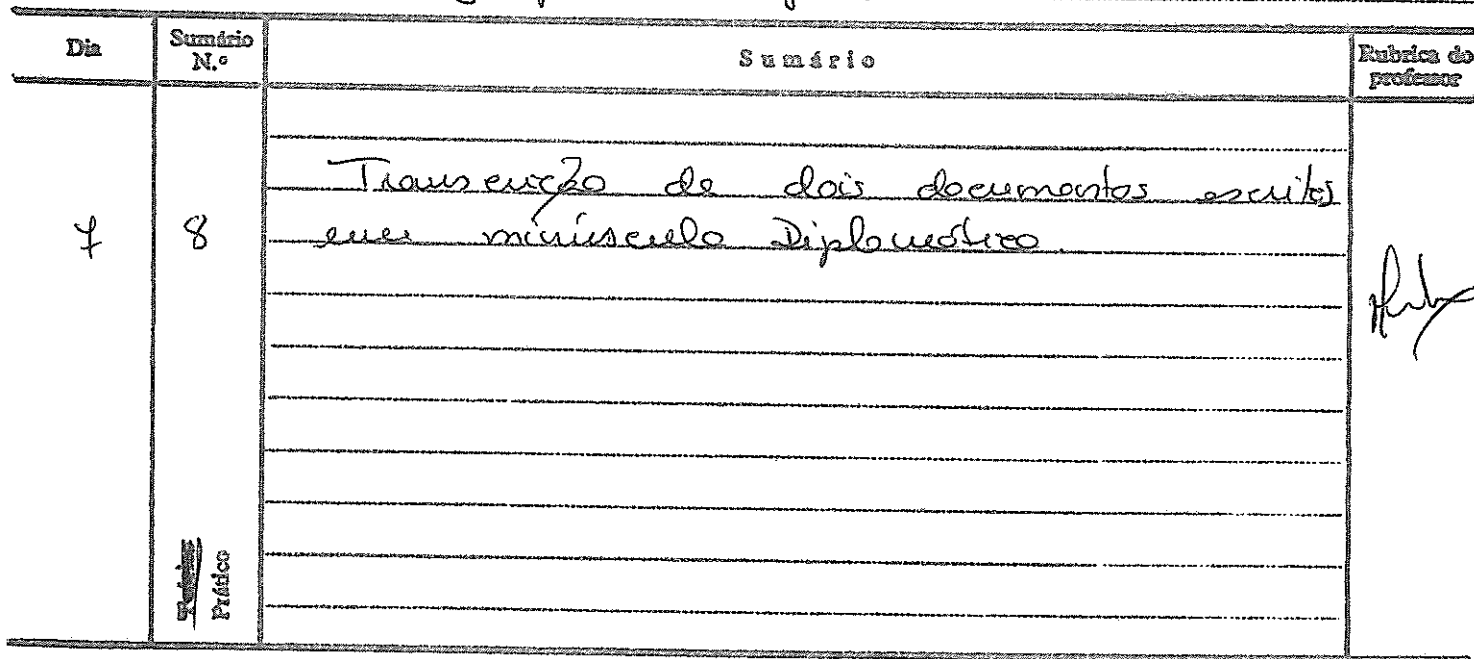 Dia
Sumário N.º
Sumário
Rubrica do professor
7
8
Transcrição de dois documentos escritos
em minúsculo Diplomático.
Prático